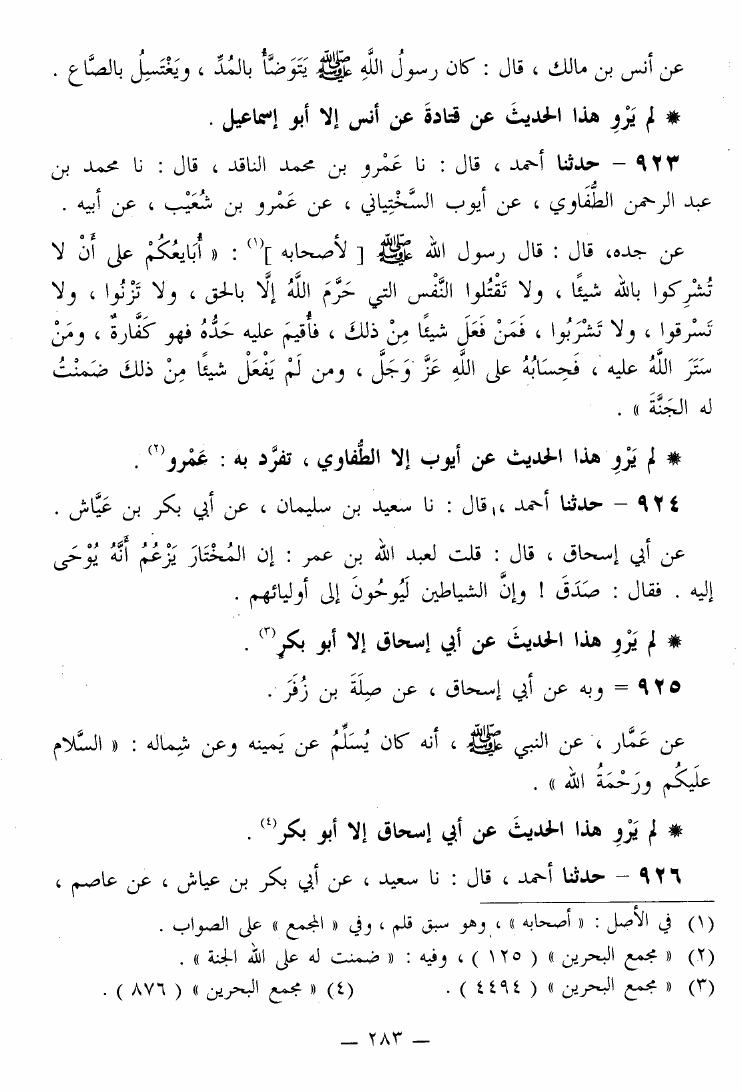 عن أنس بن مالك ، قال : كان رسولُ اللَّهِ ﷺ يَتَوَضَّأُ بالمُدِّ ، ويَغْتَسِلُ بالصَّاع .
* لم يَرْوِ هذا الحديثَ عن قتادةَ عن أنس إلا أبو إسماعيل .
٩٢٣ – حدثنا أحمد ، قال : نا عَمْرو بن محمد الناقد ، قال : نا محمد بن
عبد الرحمن الطُّفَاوي ، عن أيوب السَّخْتِياني ، عن عَمْرو بن شُعَيْب ، عن أبيه .
عن جده، قال : قال رسول الله ﷺ [ لأصحابه ](١) : « أُبَايعُكُمْ على أَنْ لا
تُشْرِكوا بالله شيئًا ، ولا تَقْتُلوا النَّفْس التي حَرَّمَ اللَّهُ إلَّا بالحق ، ولا تَزْنُوا ، ولا
تَسْرقوا ، ولا تَشْرَبُوا ، فَمَنْ فَعَلَ شيئًا مِنْ ذلك ، فأُقيمَ عليه حَدُّهُ فهو كَفَّارةٌ ، ومَنْ
سَتَرَ اللَّهُ عليه ، فَحِسَابُهُ على اللَّهِ عَزَّ وَجَلَّ ، ومن لَمْ يَفْعَلْ شيئًا مِنْ ذلكَ ضَمنْتُ
له الجَنَّةَ » .
* لم يَرْوِ هذا الحديث عن أيوب إلا الطُّفاوي ، تفرَّد به : عَمْرو(٢) .
٩٢٤ – حدثنا أحمد ، قال : نا سعيد بن سليمان ، عن أبي بكر بن عَيَّاش .
عن أبي إسحاق ، قال : قلت لعبد الله بن عمر : إن المُخْتَارَ يَزْعُمُ أَنَّهُ يُوْحَى
إليه . فقال : صَدَقَ ! وإنَّ الشياطين لَيُوحُونَ إلى أوليائهم .
* لم يَرْوِ هذا الحديثَ عن أبي إسحاق إلا أبو بكر(٣) .
٩٢٥ = وبه عن أبي إسحاق ، عن صِلَةَ بن زُفَرَ .
عن عَمَّار ، عن النبي ﷺ ، أنه كان يُسَلِّمُ عن يَمينه وعن شِماله : « السَّلام
علَيكُم ورَحْمَةُ الله » .
* لم يَرْوِ هذا الحديثَ عن أبي إسحاق إلا أبو بكر(٤) .
٩٢٦ – حدثنا أحمد ، قال : نا سعيد ، عن أبي بكر بن عياش ، عن عاصم ،
(١) في الأصل : « أصحابه » ، وهو سبق قلم ، وفي « المجمع » على الصواب .
(٢) « مجمع البحرين » ( ١٢٥ ) ، وفيه : « ضمنت له على الله الجنة » .
(٣) « مجمع البحرين » ( ٤٤٩٤ ) . (٤) « مجمع البحرين » ( ٨٧٦ ) .
– ٢٨٣ –